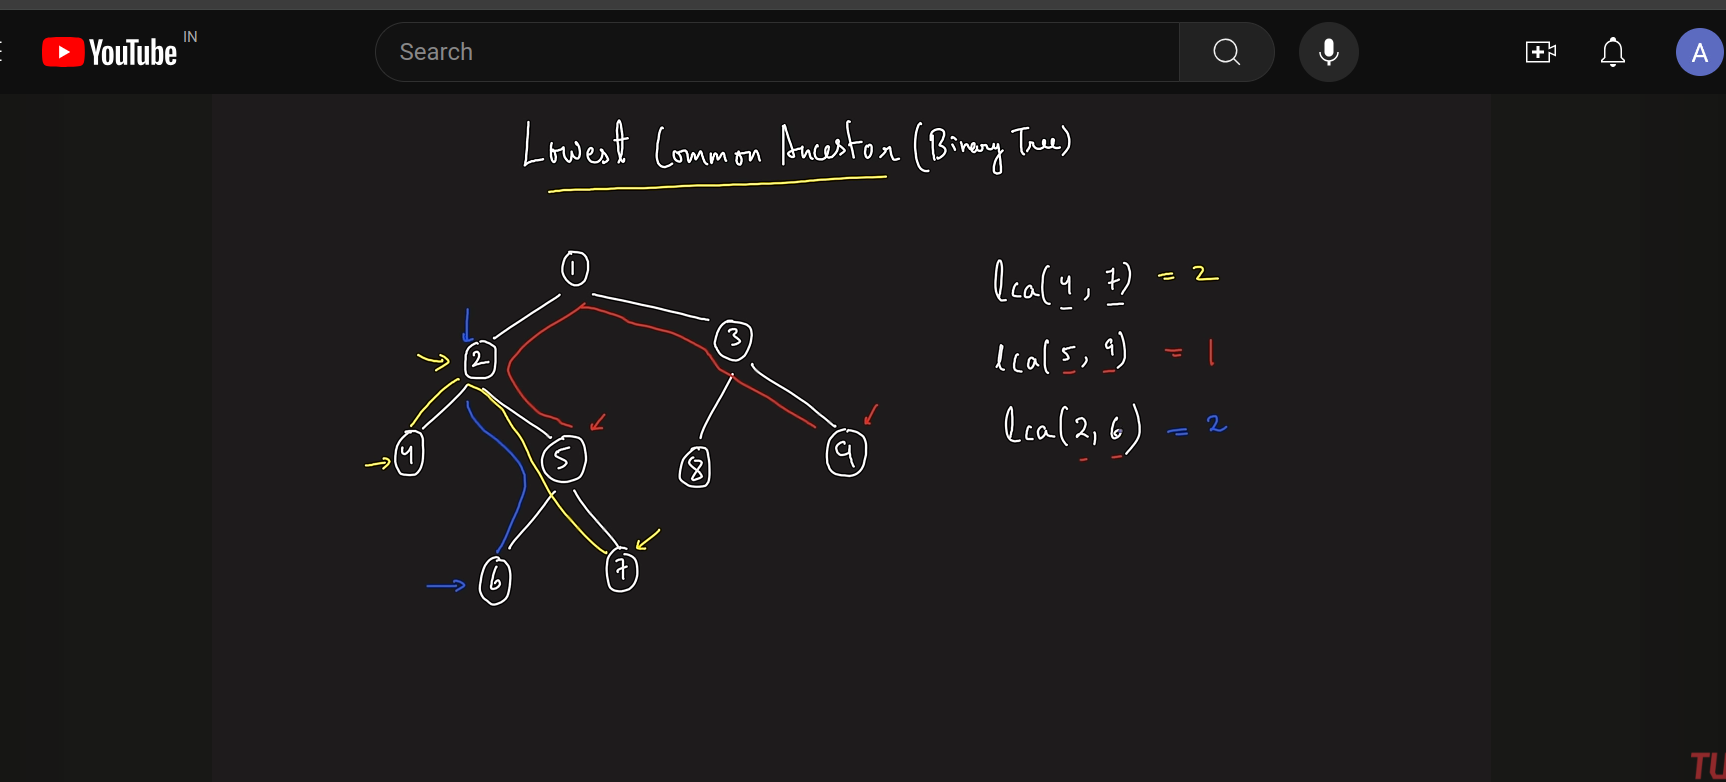 YouTube IN
Search
A
Lowest Common Ancestor (Binary Tree)
1
2
3
4
5
8
9
6
7
lca(4, 7) = 2
lca(5, 9) = 1
lca(2, 6) = 2
TU